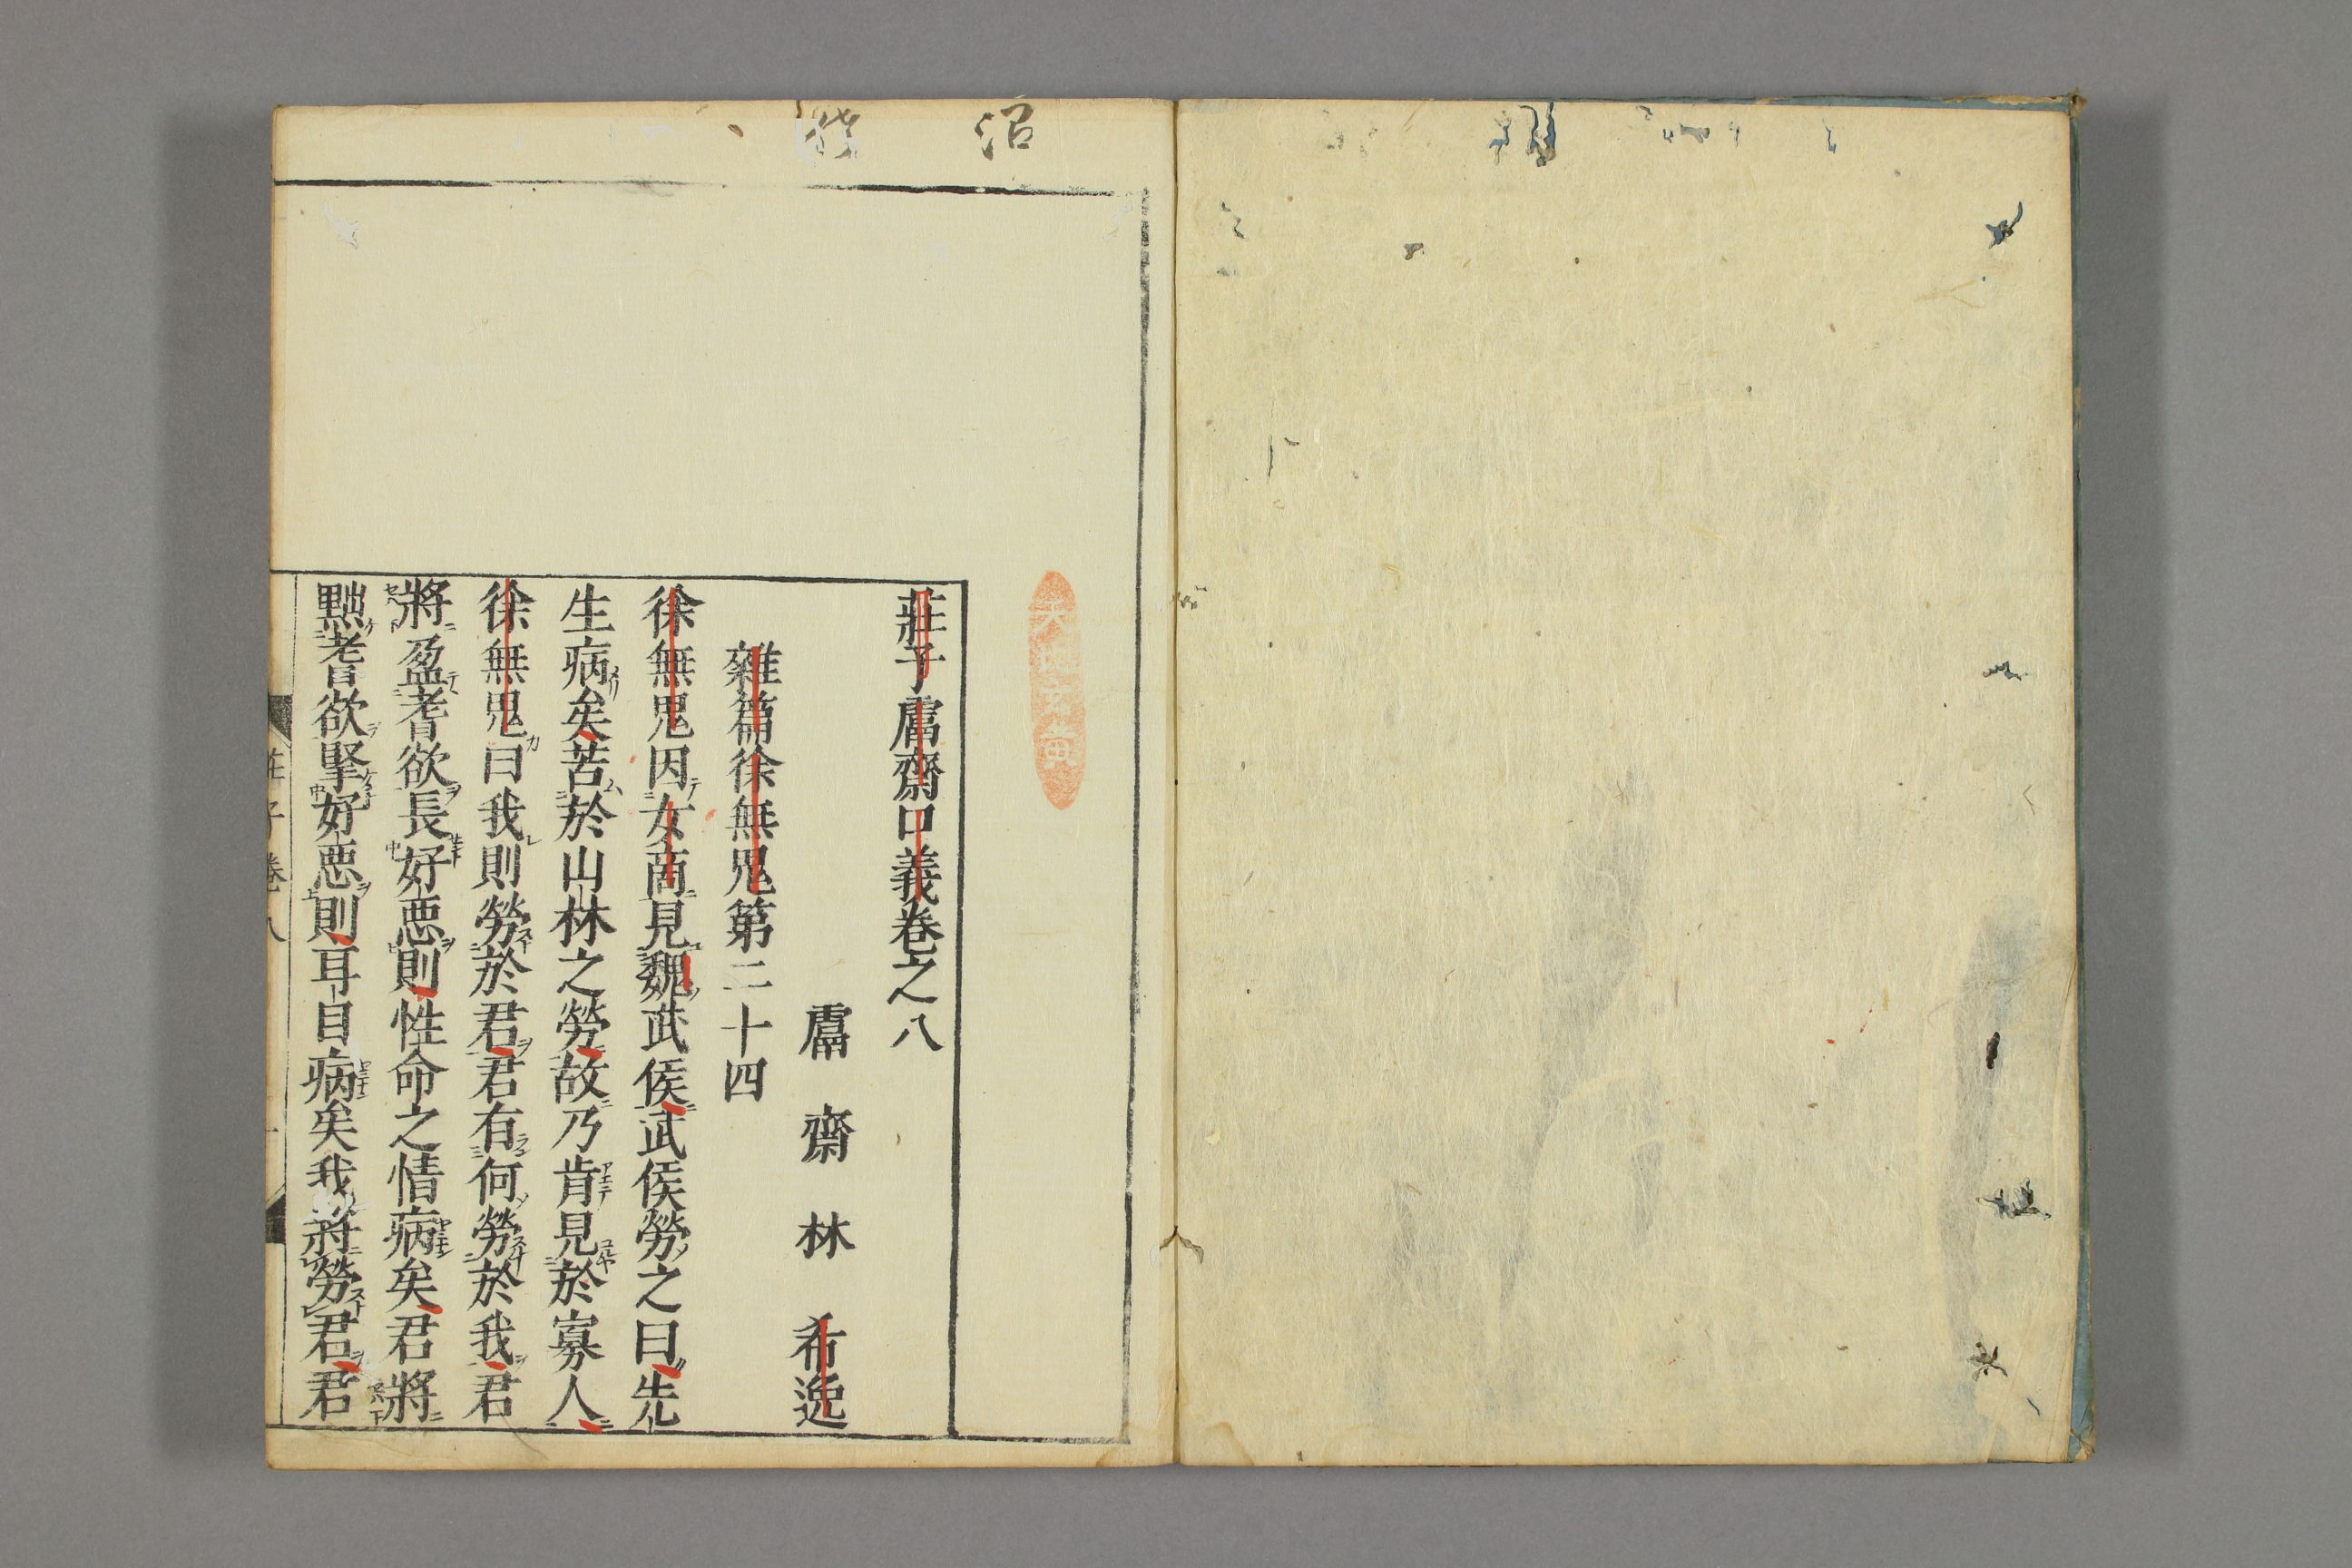 沼
莊子鬳齋口義卷之八
鬳齋林希逸
雜篇徐無鬼第二十四
徐無鬼因女商見魏武侯武侯勞之曰先
生病矣苦於山林之勞故乃肯見於寡人
徐無鬼曰我則勞於君君有何勞於我君
將盈耆欲長好惡則性命之情病矣君將
黜耆欲掔好惡則耳目病矣我將勞君君
莊子卷八